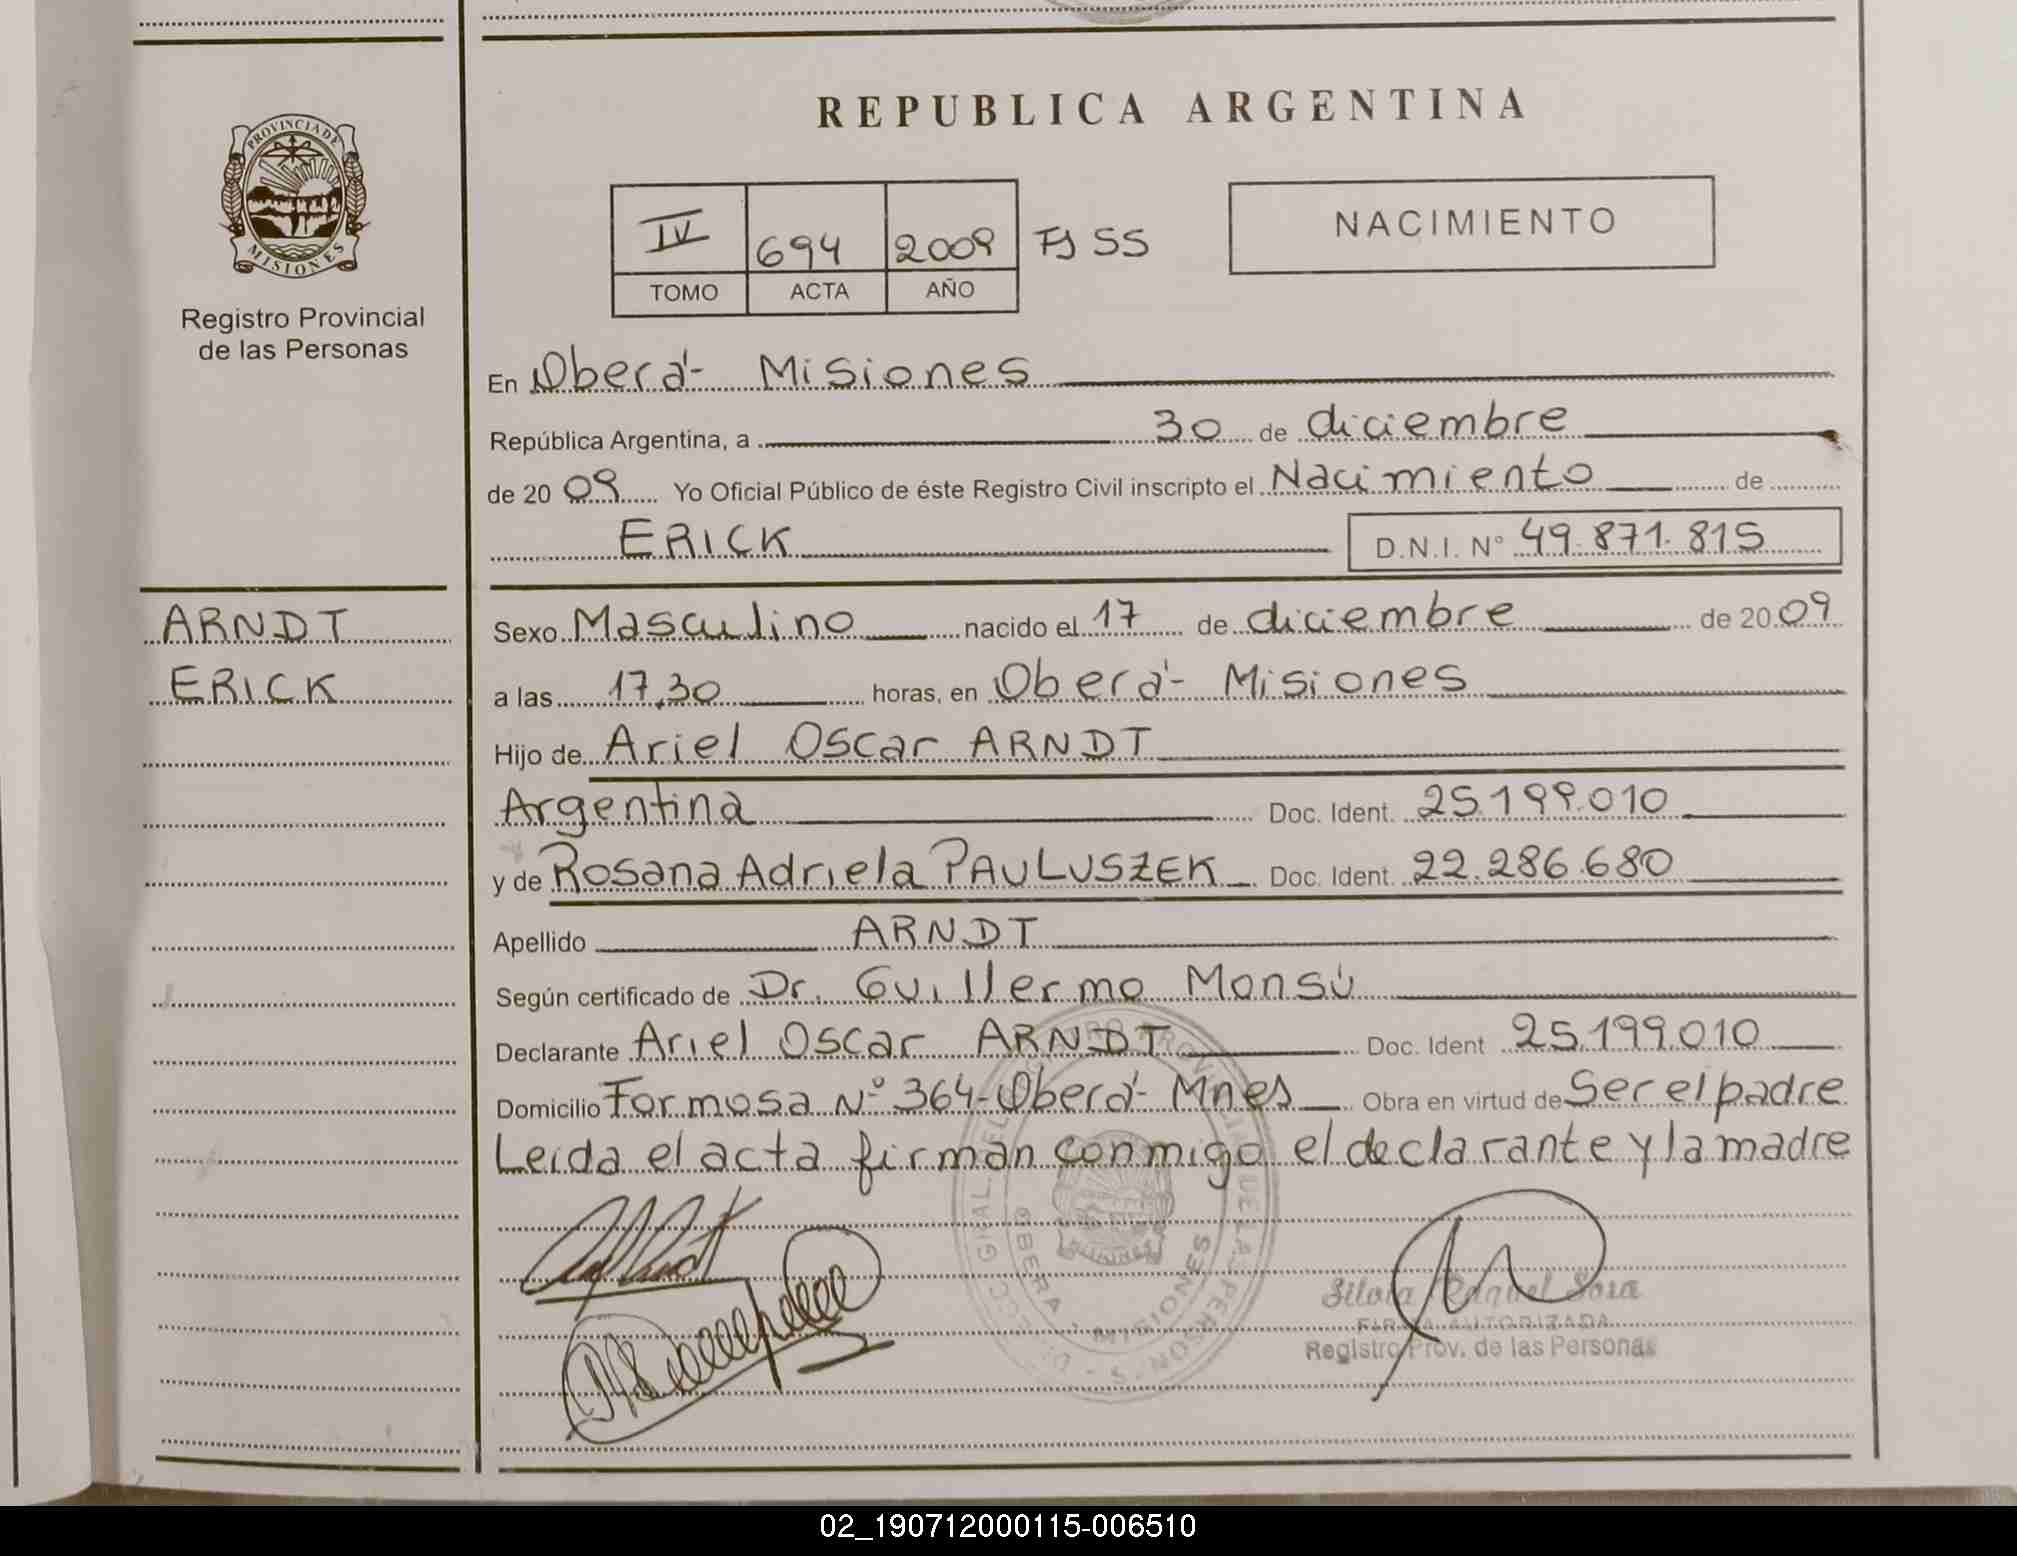 REPUBLICA ARGENTINA
PROVINCIA DE
MISIONES
Registro Provincial
de las Personas
IV 694 2009 FJ 55
TOMO ACTA AÑO
NACIMIENTO
En Oberá - Misiones
República Argentina, a 30 de diciembre
de 20 09 Yo Oficial Público de éste Registro Civil inscripto el Nacimiento de
ERICK D.N.I. N° 49.871.815
ARNDT
ERICK
Sexo Masculino nacido el 17 de diciembre de 20 09
a las 17,30 horas, en Oberá - Misiones
Hijo de Ariel Oscar ARNDT
Argentina Doc. Ident. 25.199.010
y de Rosana Adriela PAULUSZEK Doc. Ident. 22.286.680
Apellido ARNDT
Según certificado de Dr. Guillermo Monsú
Declarante Ariel Oscar ARNDT Doc. Ident 25.199.010
Domicilio Formosa N° 364 - Oberá - Mnes Obra en virtud de Ser el padre
Leída el acta firman conmigo el declarante y la madre
OBERA - MISIONES
Silvia Raquel Sosa
FIRMA AUTORIZADA
Registro Prov. de las Personas
02_190712000115-006510